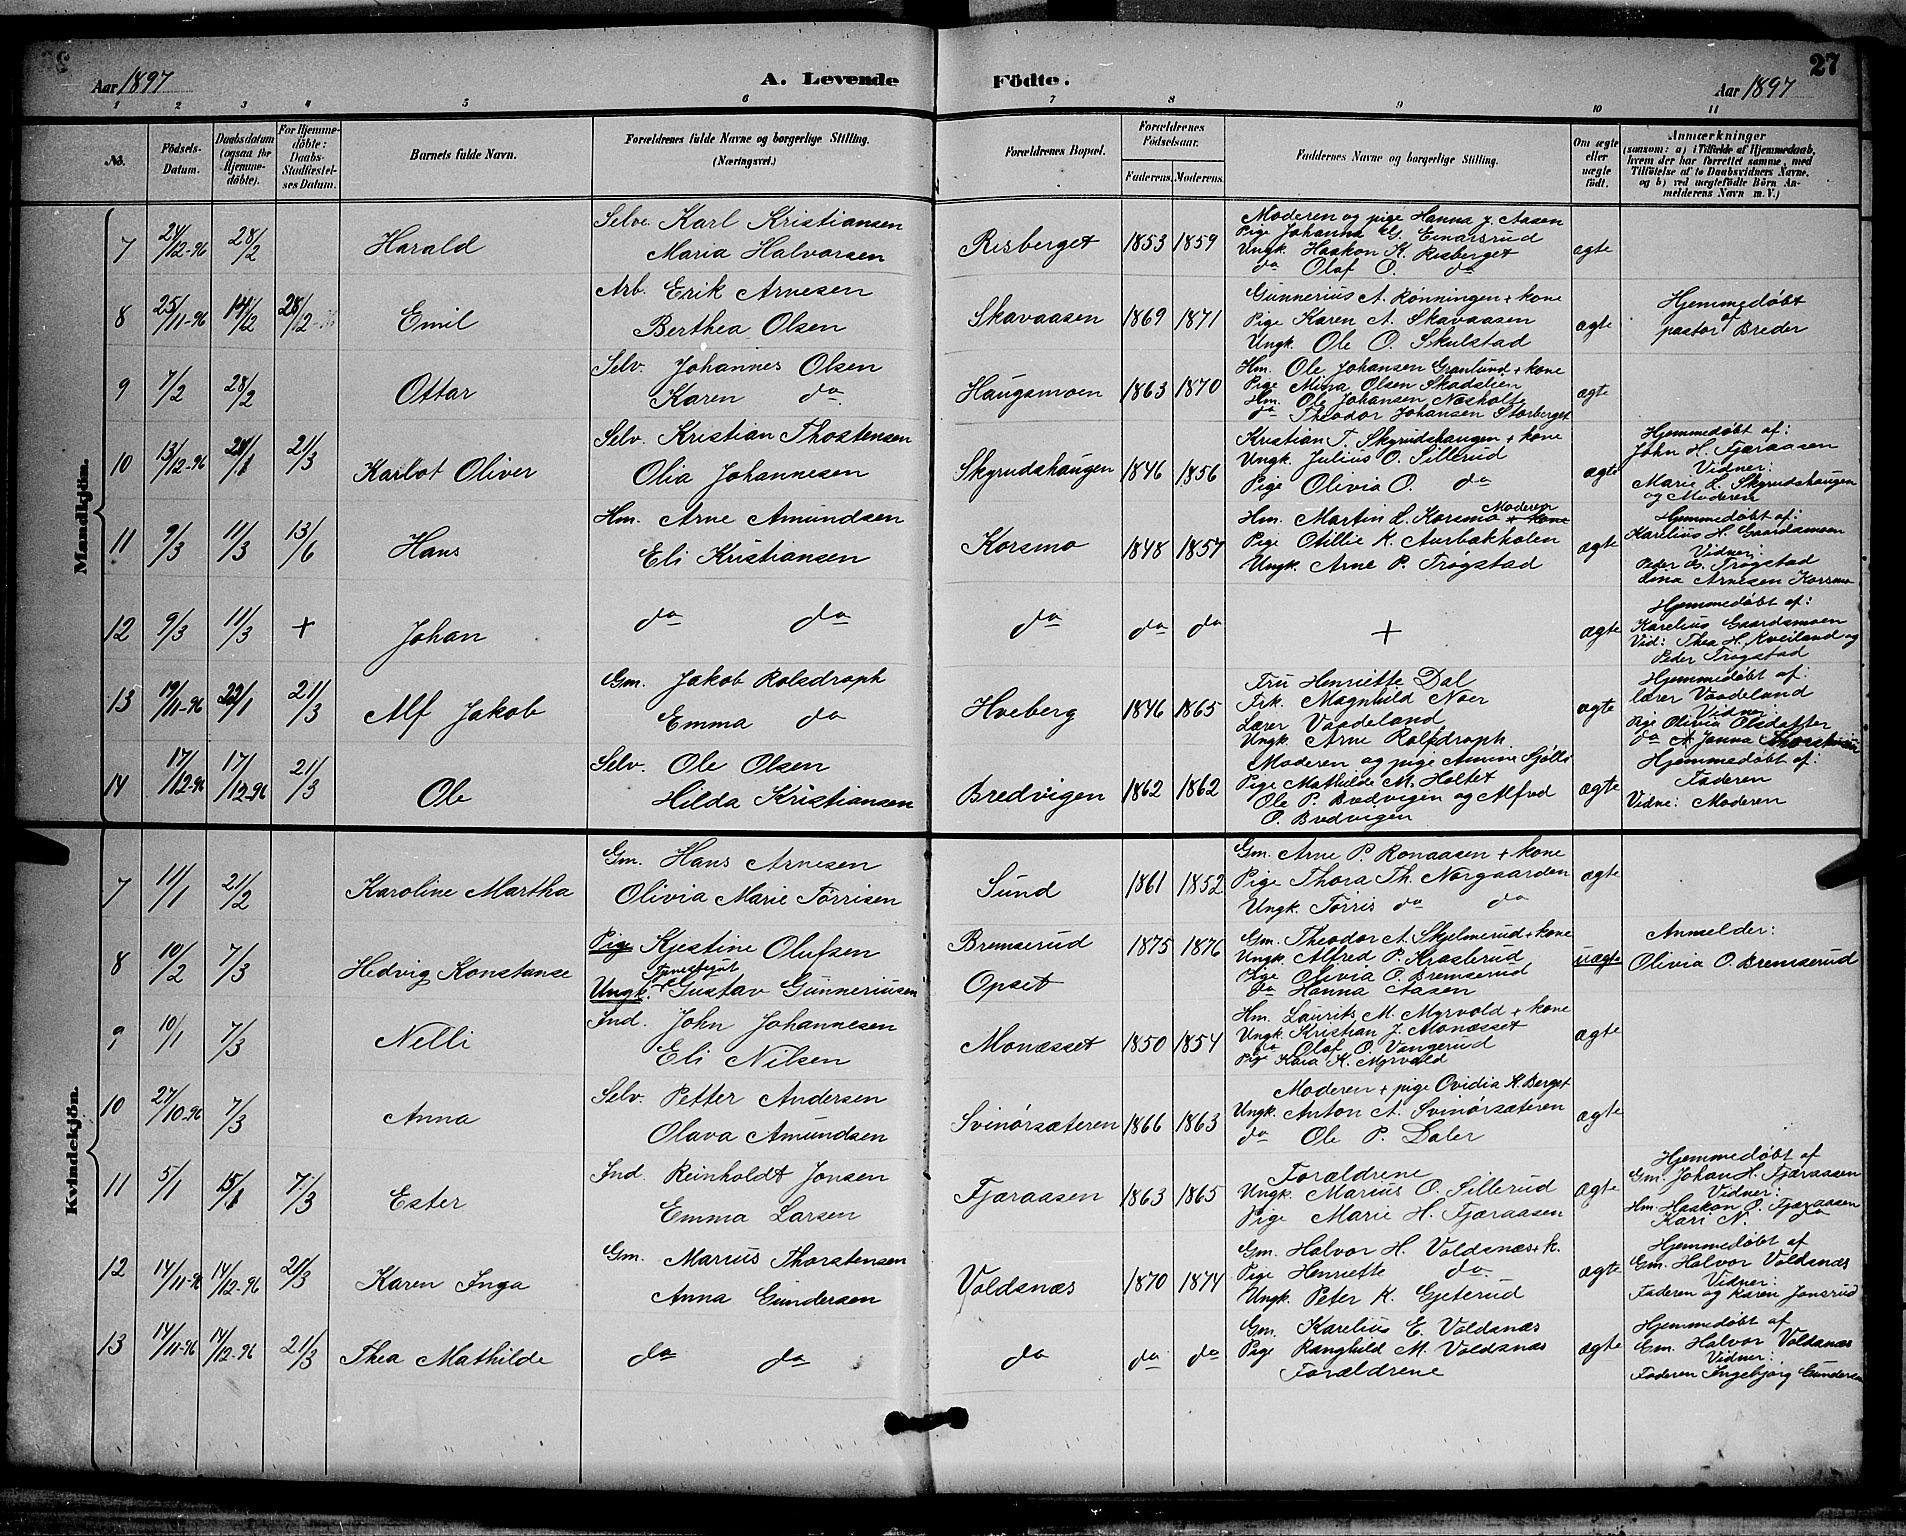 Aar 1897 A. Levende Födte. Aar 1897 27
1 2 3 4 5 6 7 8 9 10 11
No. Födsels-Datum. Daabsdatum (ogsaa for Hjemme-döbte). For Hjemme-döbte: Daabs-Stadfæstel-ses Datum. Barnets fulde Navn. Forældrenes fulde Navne og borgerlige Stilling. (Næringsvei.) Forældrenes Bopæl. Forældrenes Födselsaar. Faderens. Moderens. Faddernes Navne og borgerlige Stilling. Om ægte eller uægte födt. Anmærkninger (saasom: a) i Tilfælde af Hjemmedaab, hvem der har forrettet samme, med Tilföielse af to Daabsvidners Navne, og b) ved uægtefödte Börn An-melderens Navn m. V.)
Mandkjön.
7 24/12-96 28/2 Harald
Selve. Karl Kristiansen
Maria Halvorsen
Risberget 1853 1859
Moderen og pige Hanna J. Aasen
Pige Johanna G. Einarsrud
Ungk. Haakon K. Risberget
do Olaf O. do
ægte
8 25/11-96 14/12 28/2 Emil
Arb. Erik Arnesen
Berthea Olsen
Skavaasen 1869 1871
Gunnerius A. Rønningen + kone
Pige Karen A. Skavaasen
Ungk. Ole O. Skulstad
ægte
Hjemmedøbt
af
pastor Breder
9 7/2 28/2 Ottar
Selv. Johannes Olsen
Karen do
Haugsmoen 1863 1870
Hm. Ole Johansen Granlund + kone
Pige Mina Olsen
Hm. Ole Johansen Næsholte
do Theodor Johansen Storberget
ægte
10 13/12-96 24/1 21/3 Karlot Oliver
Selv. Kristian Thostensen
Olia Johannesen
Skyrudshaugen 1846 1856
Kristian T. Skyrudshaugen + kone
Ungk. Julius O. Sillerud
Pige Olivia O. do
ægte
Hjemmedøbt af:
John H. Fjæraasen
Vidner:
Marie L. Skyrudshaugen
og Moderen
11 9/3 11/3 13/6 Hans
Hm. Arne Amundsen
Eli Kristiansen
Korsmo 1848 1857
Moderen
Hm. Martin L. Korsmo + kone
Pige Otillie K. Aurbakholen
Ungk. Arne P. Trøgstad
ægte
Hjemmedøbt af:
Karelius H. Gaardsmoen
Vidner:
Peder Trøgstad
Lina Arnesen Korsmo
12 9/3 11/3 + Johan
do do
do do do
+
ægte
Hjemmedøbt af:
Karelius Gaardsmoen
Vid: Thea H. Kveiland og
Peder Trøgstad
13 19/11-96 22/1 21/3 Alf Jakob
Gm. Jakob Rolsdroph
Emma do
Hveberg 1846 1865
Fru Henriette Dal
Frk. Magnhild Noer
Lærer Vaadeland
Ungk. Arne Rolsdroph.
ægte
Hjemmedøbt af:
lærer Vaadeland
Vidner:
Pige Olivia Olsdatter
do Janna
14 17/12-96 17/12-96 21/3 Ole
Selv. Ole Olsen
Hilda Kristiansen
Bredvigen 1862 1862
Moderen og pige Amine Sjølli
Pige Mathilde M. Holtet
Ole P. Bredvigen og Alfred
O. Bredvigen
ægte
Hjemmedøbt af:
Faderen
Vidne: Moderen
Kvindekjön.
7 11/1 21/2 Karoline Martha
Gm. Hans Arnesen
Olivia Marie Tørrisen
Sund 1861 1852
Gm. Arne P. Ronaasen + kone
Pige Thora Th. Norgaarden
Ungk. Tørris do do
ægte
8 10/2 7/3 Hedvig Konstanse
Pige Kjestine Olufsen
Tjenestegut
Ungk. Gustav Gunneriusen
Bremserud
Opset
1875 1876
Gm. Theodor A. Skjelmerud + kone
Ungk. Alfred P. Krosterud
Pige Olivia O. Bremserud
do Hanna Aasen
uægte
Anmelder:
Olivia O. Bremserud
9 10/1 7/3 Nelli
Ind. John Johannesen
Eli Nilsen
Monæsset 1850 1854
Hm. Laurits M. Myrvold + kone
Ungk. Kristian J. Monæsset
do Olaf O. Vangerud
Pige Kaia K. Myrvold
ægte
10 27/10-96 7/3 Anna
Selv. Petter Andersen
Olava Amundsen
Svinørsæteren 1866 1863
Moderen + pige Ovidia K. Berget
Ungk. Anton A. Svinørsæteren
do Ole P. Daler
ægte
11 5/1 15/1 7/3 Ester
Ind. Reinholdt Jonsen
Emma Larsen
Fjæraasen 1863 1865
Forældrene
Ungk. Marius O. Sillerud
Pige Marie H. Fjæraasen
ægte
Hjemmedøbt af
Gm. Johan H. Fjæraasen
Vidner:
Hm Haakon O. Fjæraasen
Kari N. do
12 14/11-96 14/12-96 21/3 Karen Inga
Gm. Marius Thorstensen
Anna Gundersen
Voldsnæs 1870 1874
Gm. Halvor H. Voldsnæs + k.
Pige Henriette do
Ungk. Peter K. Gjeterud
ægte
Hjemmedøbt af
Gm. Halvor Voldsnæs
Vidner:
Faderen og Karen Jonsrud
13 14/11-96 14/12-96 21/3 Thea Mathilde
do do
do do do
Gm. Karelius E. Voldsnæs
Pige Ranghild M. Voldsnæs
Forældrene
ægte
Hjemmedøbt af
Gm. Halvor Voldsnæs
Vidner:
Faderen Ingebjørg Gundersen